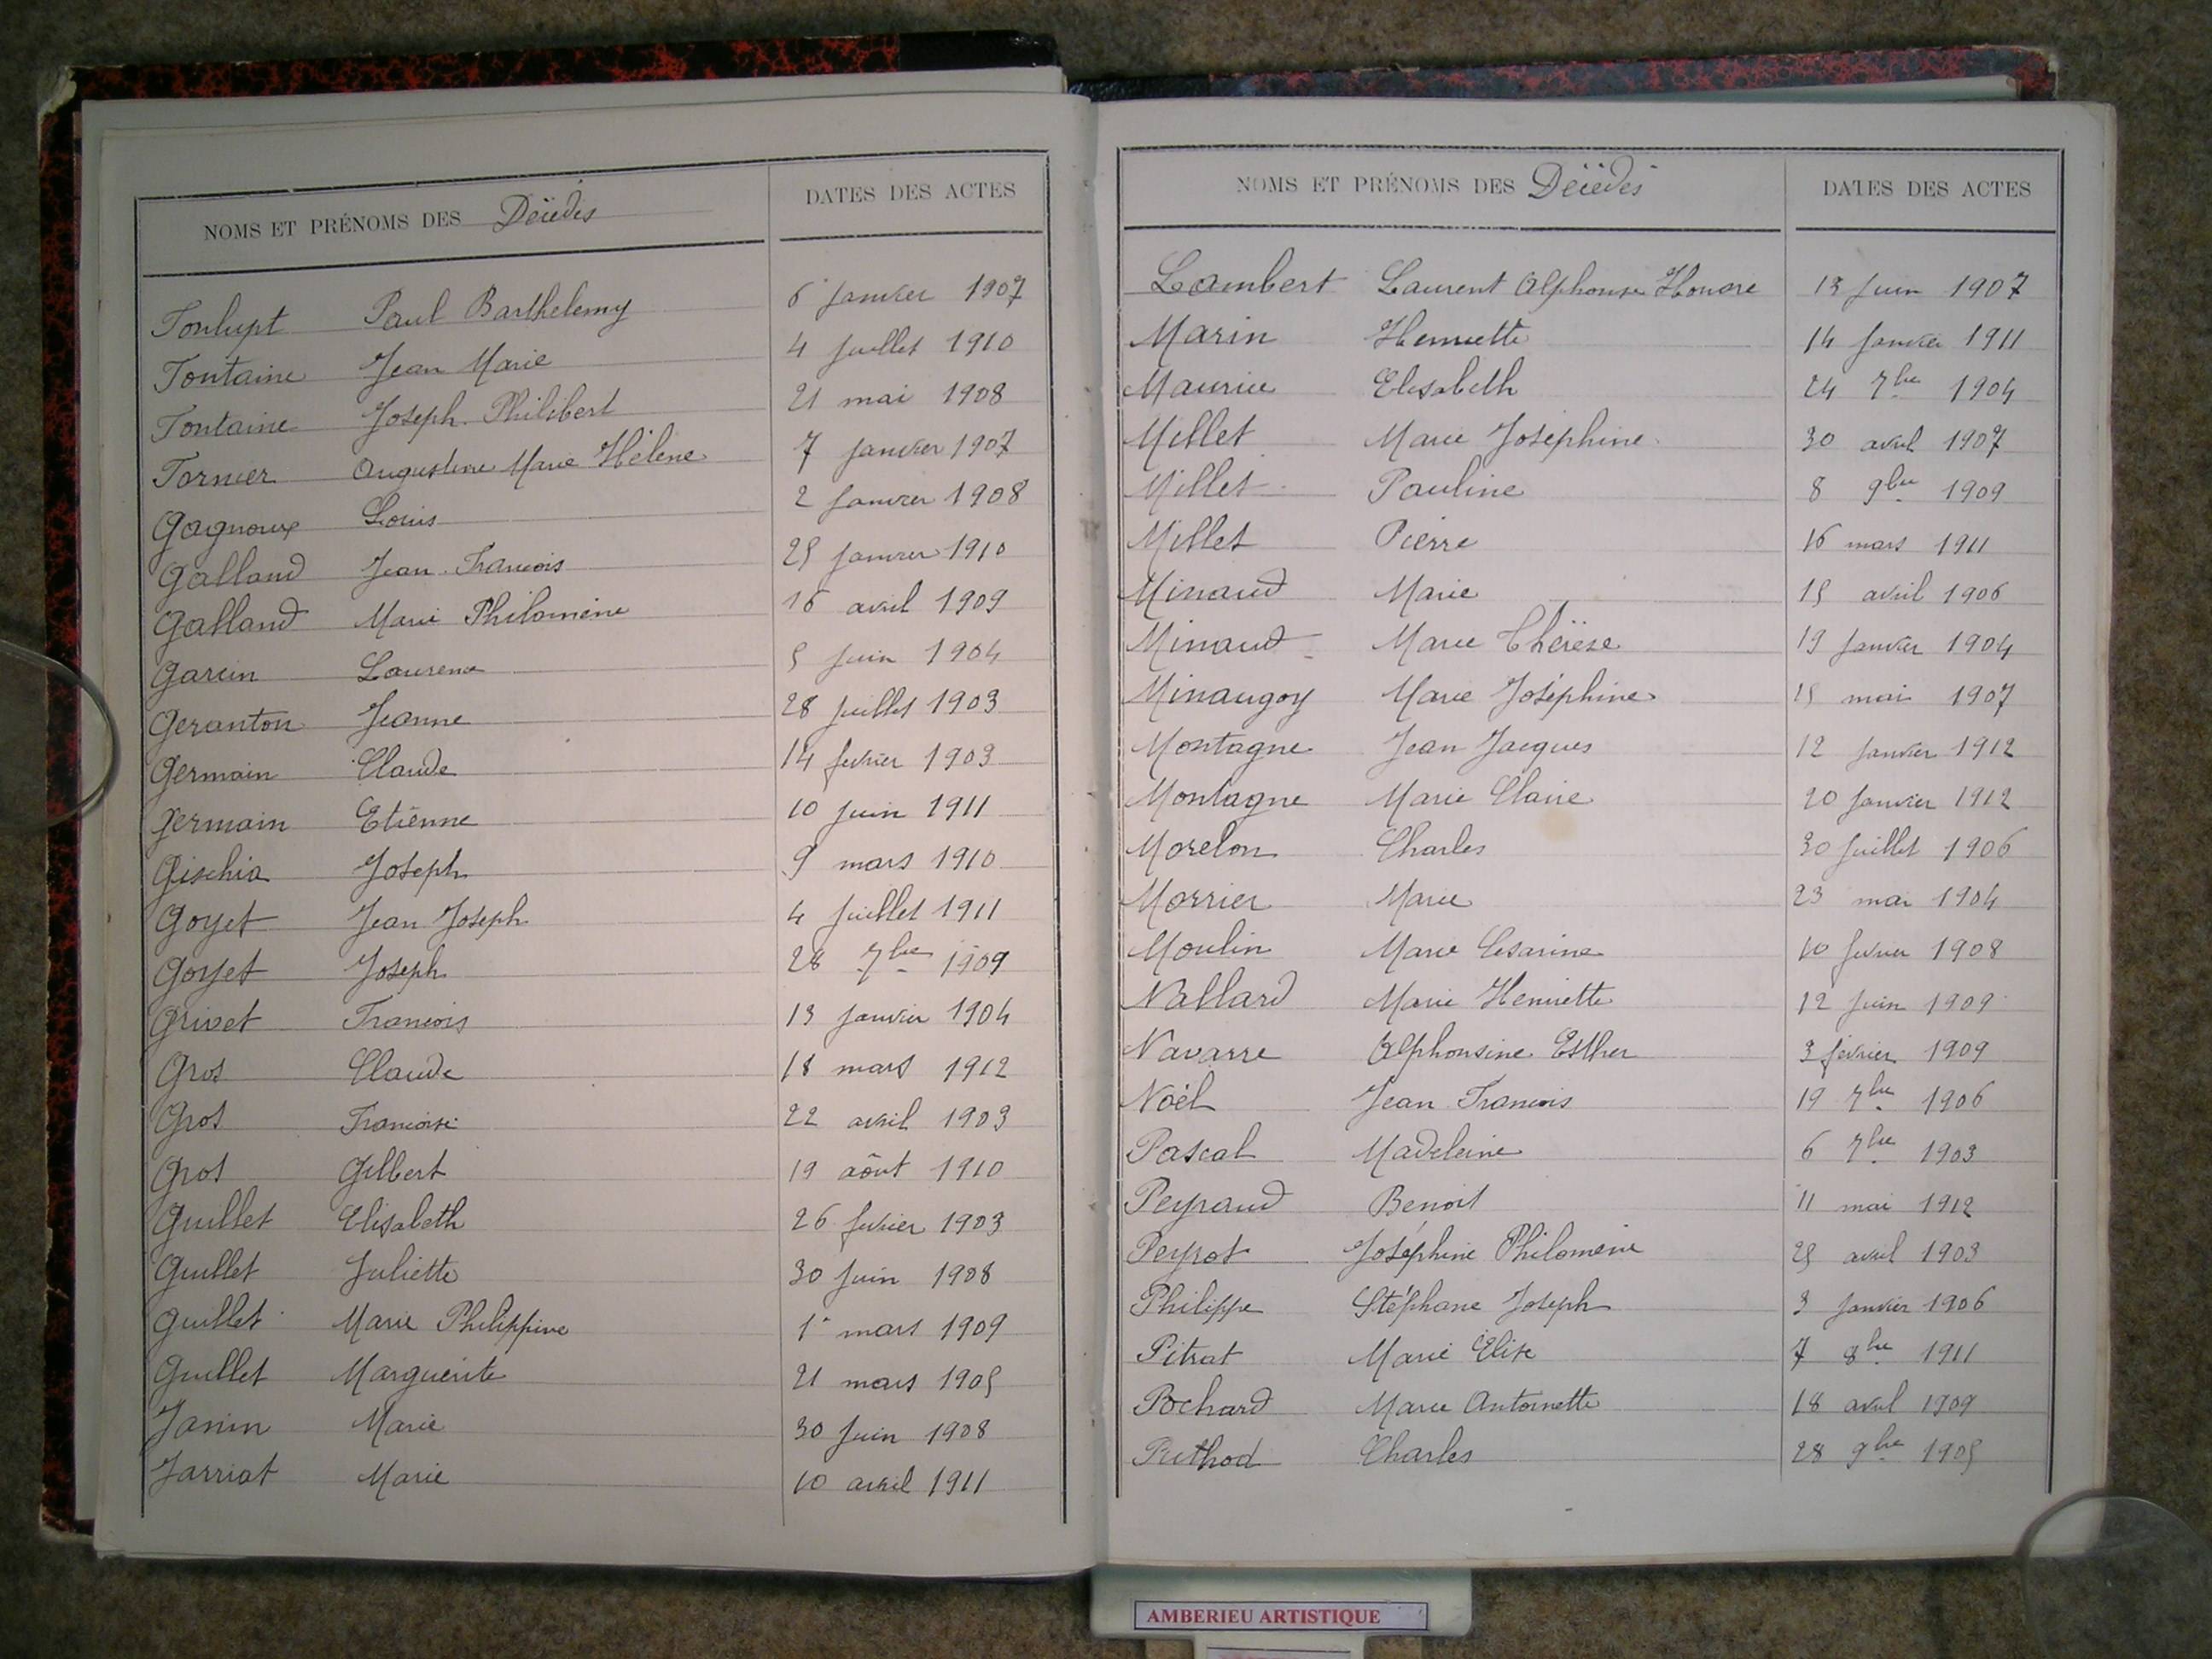 NOMS ET PRÉNOMS DES Décédés DATES DES ACTES
Fonlupt Paul Barthelemy 6 janvier 1907
Fontaine Jean Marie 4 juillet 1910
Fontaine Joseph Philibert 21 mai 1908
Fornier Augustine Marie Hélène 7 janvier 1907
Gagnoux Louis 2 janvier 1908
Galland Jean François 25 janvier 1910
Galland Marie Philomène 16 avril 1909
Garcin Laurence 5 juin 1904
Geranton Jeanne 28 juillet 1903
Germain Claude 14 fevrier 1903
Germain Etienne 10 juin 1911
Gischia Joseph 9 mars 1910
Goyet Jean Joseph 4 juillet 1911
Goyet Joseph 28 7bre 1909
Grivet François 13 janvier 1904
Gros Claude 18 mars 1912
Gros Françoise 22 avril 1903
Gros Gilbert 19 aôut 1910
Guillet Elisabeth 26 fevrier 1903
Guillet Juliette 30 juin 1908
Guillet Marie Philippine 1er mars 1909
Guillet Marguerite 21 mars 1905
Janin Marie 30 juin 1908
Jarriat Marie 10 avril 1911
NOMS ET PRÉNOMS DES Décédés DATES DES ACTES
Lambert Laurent Alphonse Honore 13 juin 1907
Marin Henriette 14 janvier 1911
Maurice Elisabeth 24 7bre 1904
Millet Marie Joséphine 30 avril 1907
Millet Pauline 8 9bre 1909
Millet Pierre 16 mars 1911
Minaud Marie 15 avril 1906
Minaud Marie Thérèse 19 janvier 1904
Minaugoy Marie Joséphine 15 mai 1907
Montagne Jean Jacques 12 janvier 1912
Montagne Marie Claire 20 janvier 1912
Morelon Charles 30 juillet 1906
Morrier Marie 23 mai 1904
Moulin Marie Cesarine 10 fevrier 1908
Nallard Marie Henriette 12 juin 1909
Navarre Alphonsine Esther 3 février 1909
Noël Jean François 19 7bre 1906
Pascal Madeleine 6 7bre 1903
Peyraud Benoit 11 mai 1912
Peyrot Joséphine Philomène 25 avril 1903
Philippe Stéphane Joseph 3 janvier 1906
Pitrat Marie Elise 7 8bre 1911
Pochard Marie Antoinette 18 avril 1909
Puthod Charles 28 9bre 1905
AMBERIEU ARTISTIQUE